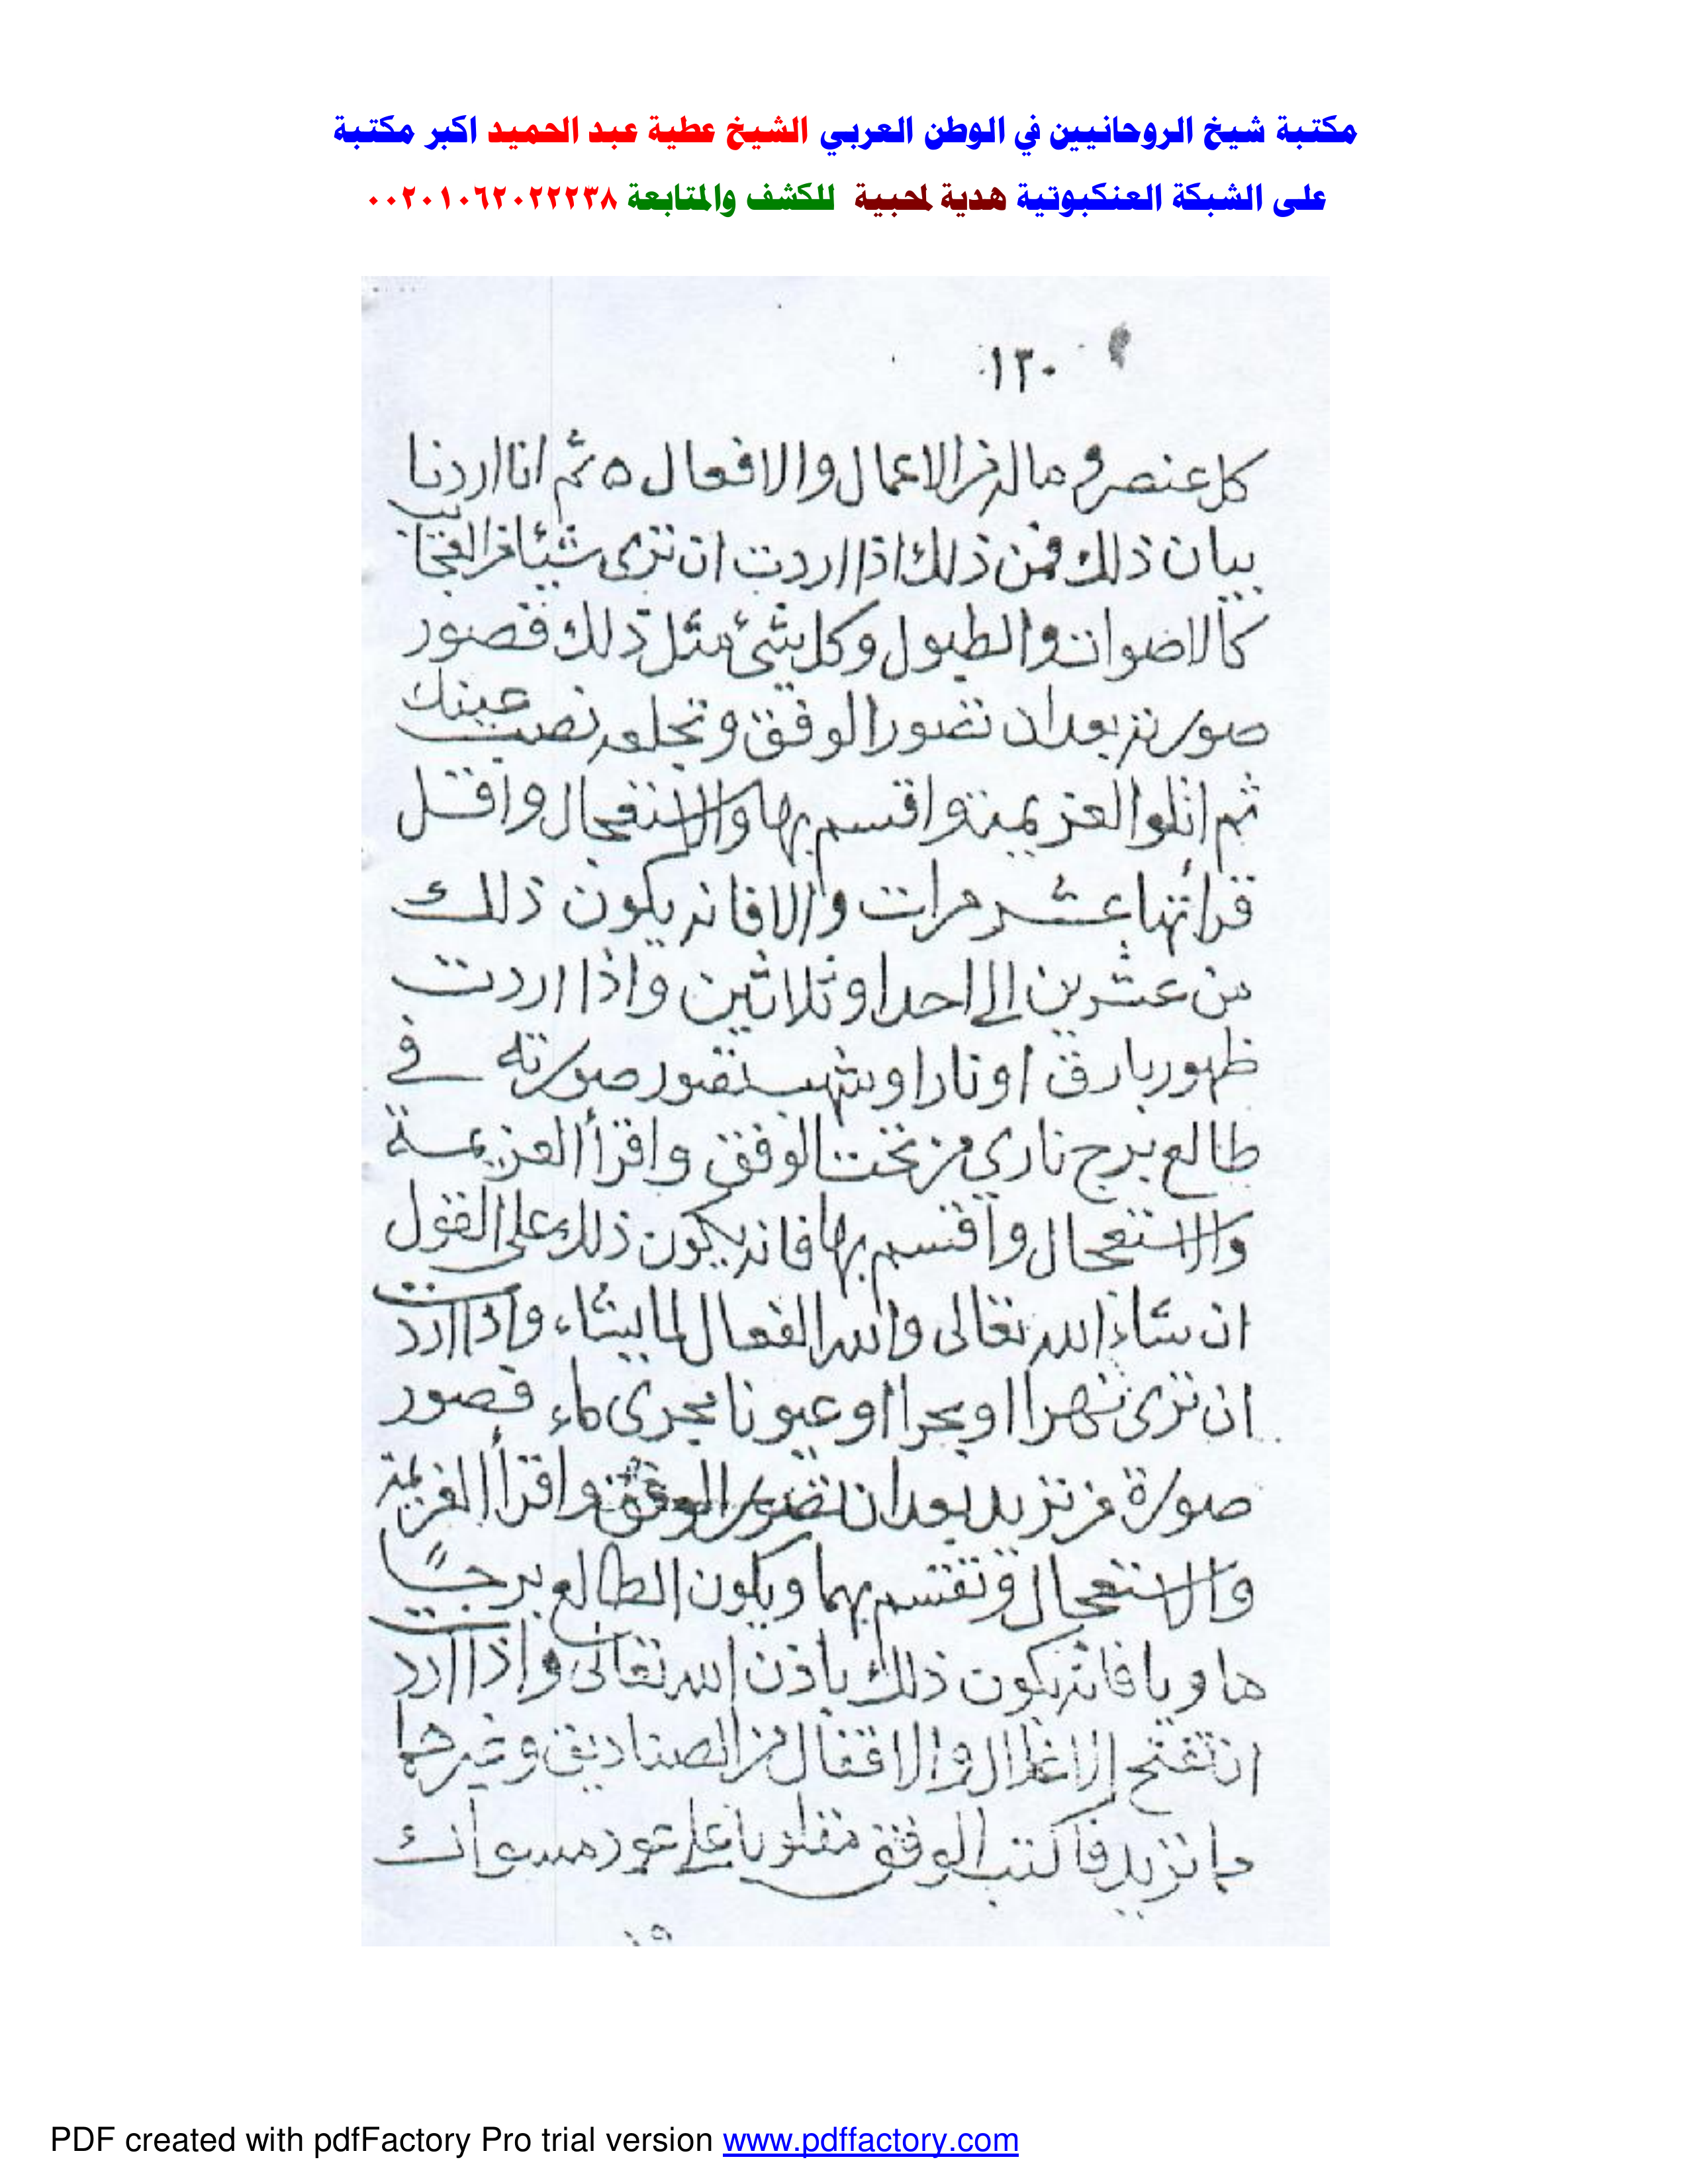 مكتبة شيخ الروحانيين في الوطن العربي الشيخ عطية عبد الحميد اكبر مكتبة
على الشبكة العنكبوتية هدية لمحبية للكشف والمتابعة ٠٠٢٠١٠٦٢٠٢٢٢٣٨
١٣٠
كل عنصر وماله من الاعمال والافعال ه ثم انا اردنا
بيان ذلك فمن ذلك اذا اردت ان ترى شيئا من العجائب
كالاصوات والطبول وكل شئ مثل ذلك فصور
صورته بعد ان تصور الوفق وتجلعه نصب عينك
ثم اتلوا العزيمة واقسم بها والاستعجال واقل
قرأتها عشر مرات والا فانه يكون ذلك
من عشرين الى احدا وثلاثين واذا اردت
ظهور بارق او نارا وشهب تصور صورته في
طالع برج ناري من تحت الوفق واقرأ العزيمة
والاستعجال واقسم بها فانه يكون ذلك على القول
ان شاء الله تعالى والله الفعال لما يشاء واذا اردت
ان ترى نهرا او بحرا او عيونا يجرى ماء فصور
صورة من تريد بعد ان تصور الوفق واقرأ العزيمة
والاستعجال وتقسم بهما ويكون الطالع برجًا
هاويا فانه يكون ذلك باذن الله تعالى واذا اردت
ان تفتح الاغلال والاقفال من الصناديق وغيرها
ما تريد فاكتب الوفق مقلوبا على عود مسواك
PDF created with pdfFactory Pro trial version www.pdffactory.com